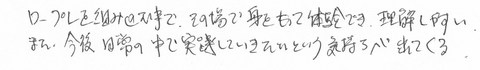 ロープレを組み込む事で、その場で身をもって体験でき、理解し易い
また、今後日常の中で実践していきたいという気持ちが出てくる